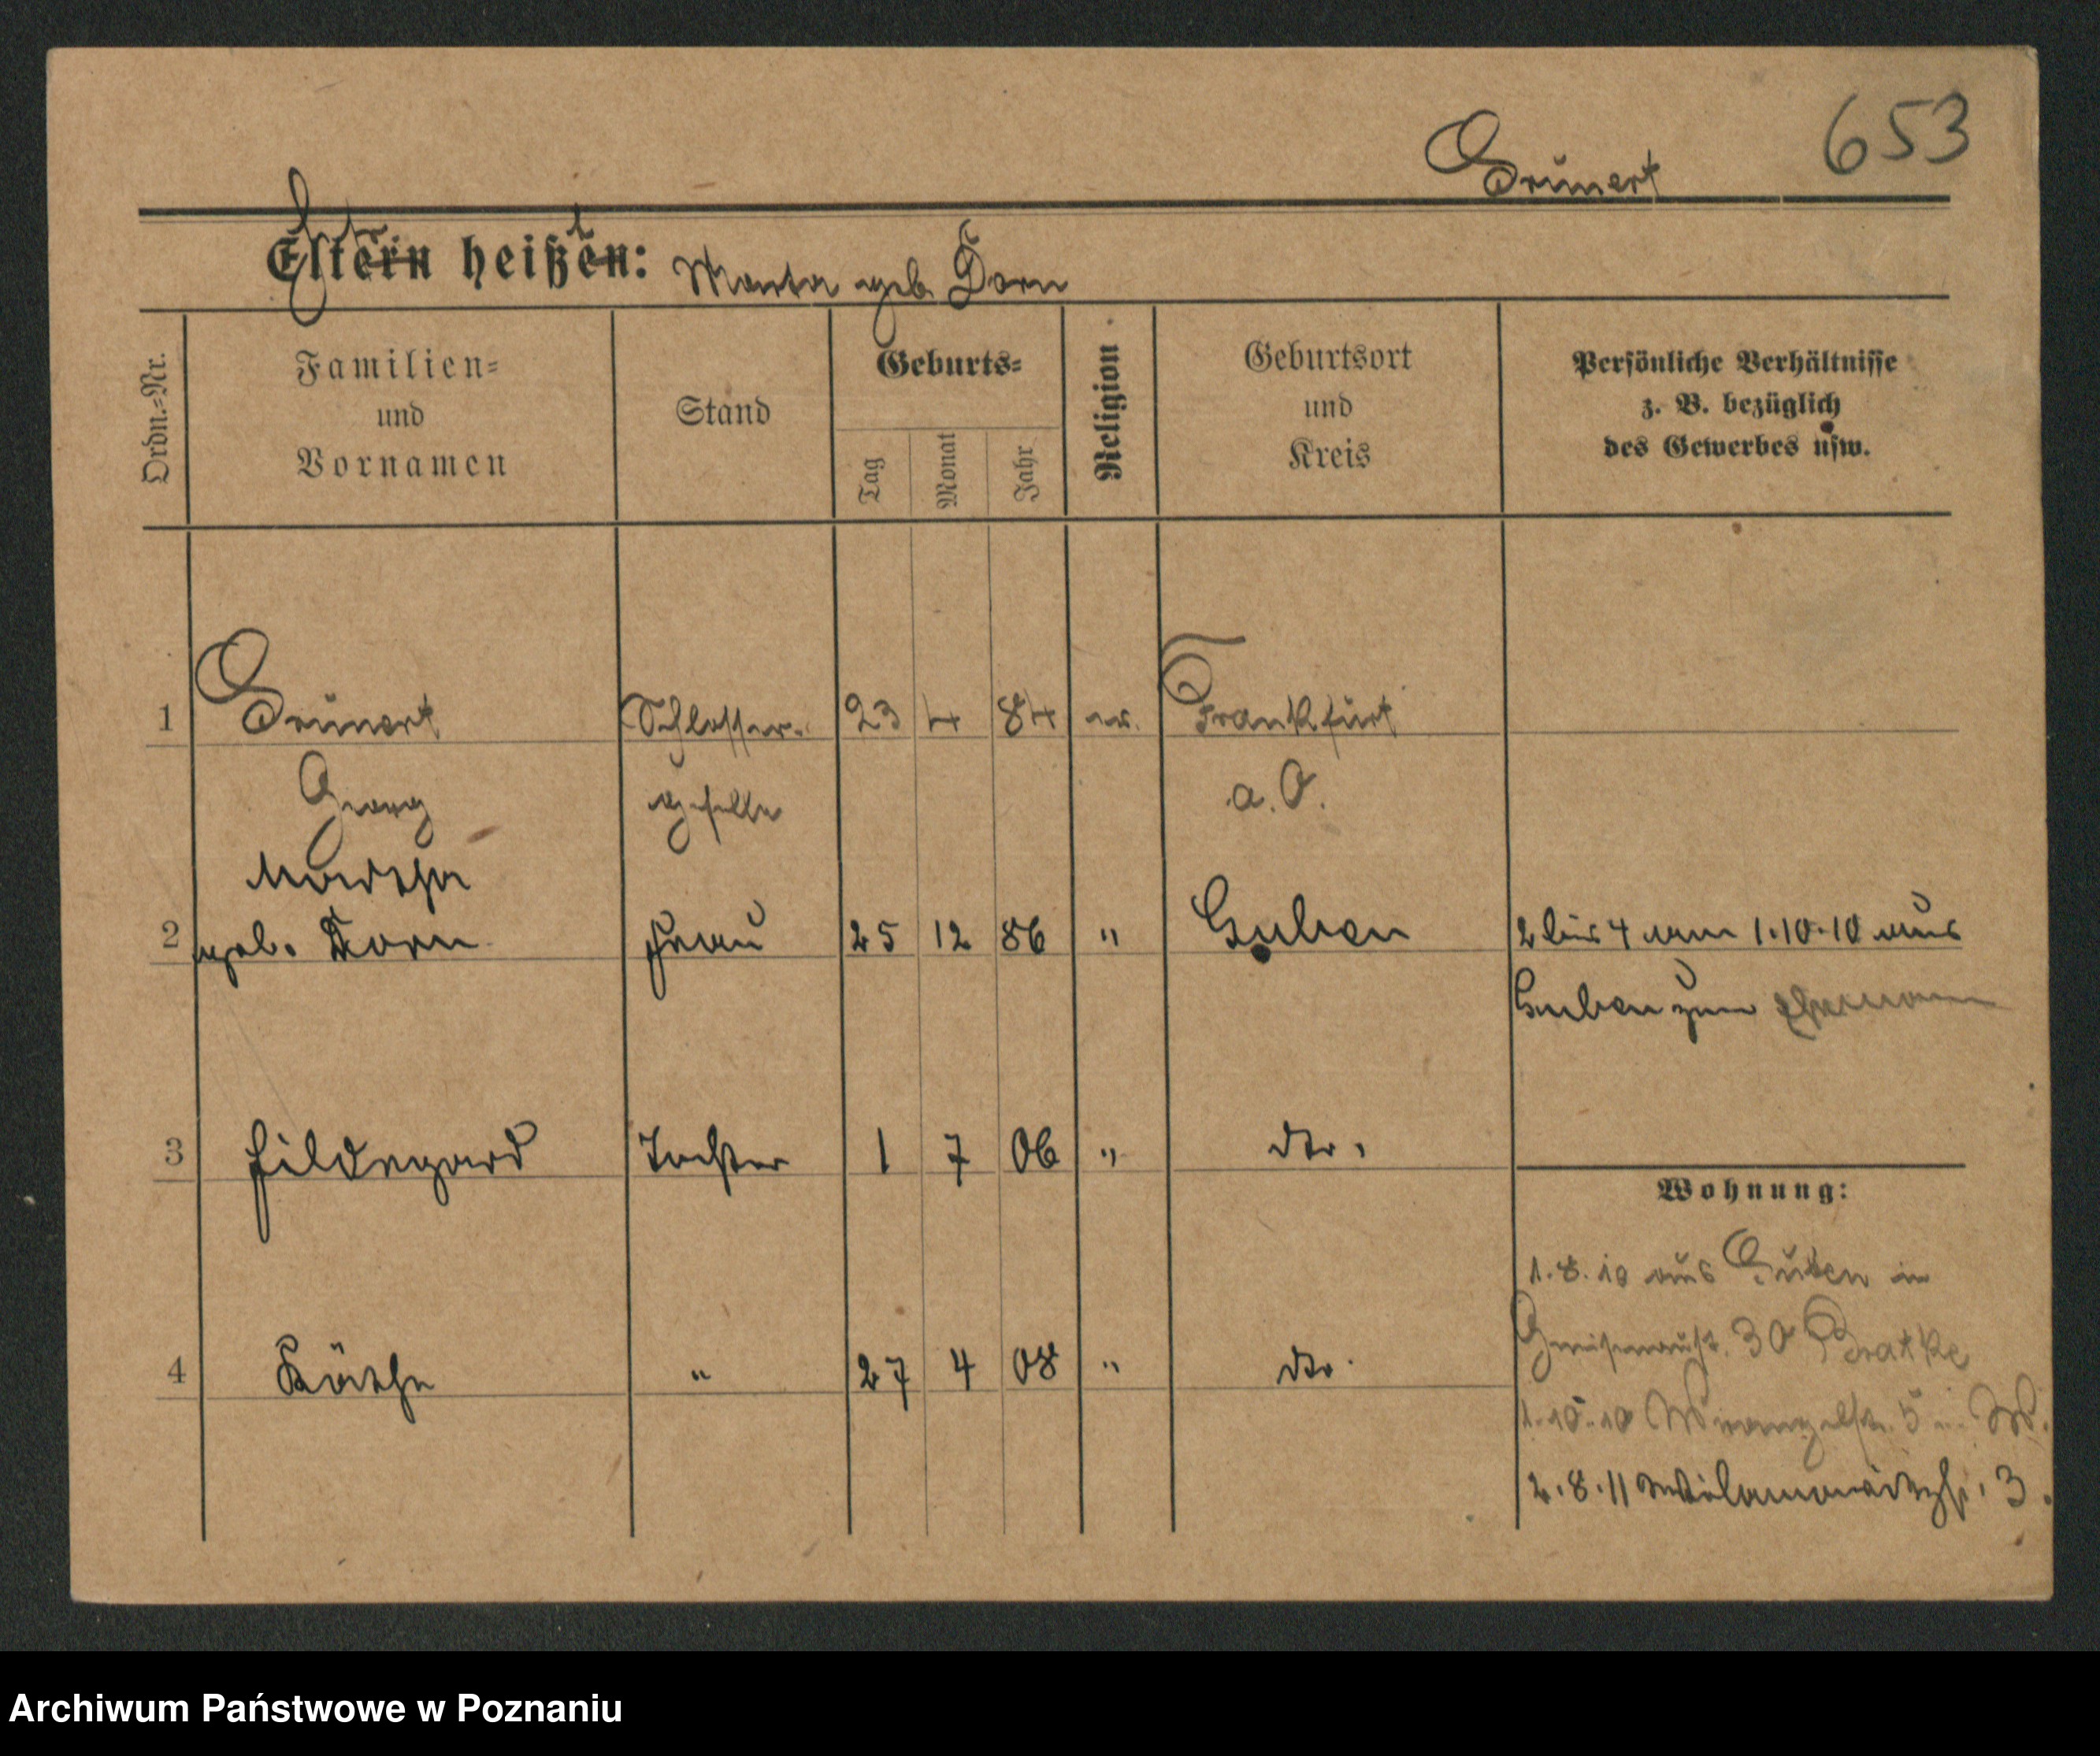 653
Grünert
Eltern heißen: Marta geb. Dorn
Ordn.-Nr.
Familien-
und
Vornamen
Stand
Geburts-
Tag
Monat
Jahr
Religion
Geburtsort
und
Kreis
Persönliche Verhältnisse
z. B. bezüglich
des Gewerbes usw.
1 Grünert Schlosser- 23 4 84 ev. Frankfurt
Georg geselle a. O.
Martha
2 geb. Dorn Frau 25 12 86 " Guben 2 bis 4 am 1.10.10 aus
Guben zum Ehemann
3 Hildegard Tochter 1 7 06 " dto.
Wohnung:
1.8.10 aus Guben in
Gneisenaustr. 30 Bratke
4 Käthe " 27 4 08 " dto.
1.10.10 Wrangelstr. 5 W.
2.8.11 Wilamowitzstr. 3.
Archiwum Państwowe w Poznaniu